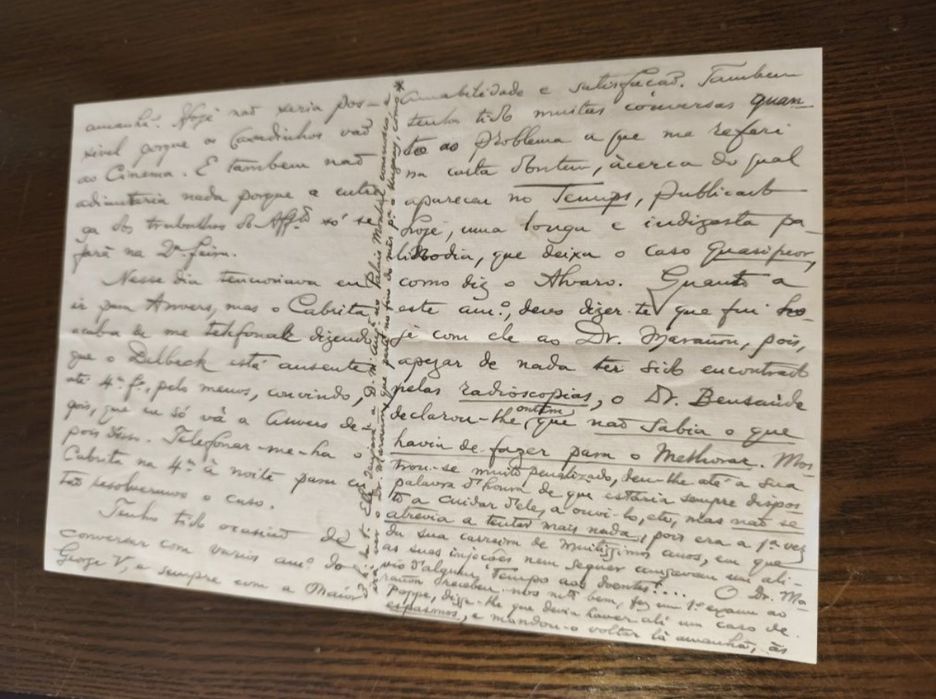 amanhã. Hoje não seria pos-
sivel porque os Cavadinhos vão
ao Cinema. E tambem não
adiantaria nada porque a entre
ga dos trabalhos do só se
fará na 2ª feira.
Nesse dia tencionava eu
ir para Anvers, mas o Cabrita
acaba de me telefonar dizendo
que o Delbeck está ausente
até 4ª fª, pelo menos, convindo,
pois, que eu só vá a Anvers de-
pois disso. Telefonar-me-ha o
Cabrita na 4ª à noite para en
tão resolvermos o caso.
Tenho tido ocasião de
conversar com varios amº do
George V, e sempre com a Maior
*
amabilidade e satisfacão. Tambem
tenho tido muitas conversas quan-
to ao Problema a que me referi
na carta d'ontem, àcerca do qual
apareceu no Temps, publicado
hoje, uma longa e indigesta pa-
linodia, que deixa o caso quasi peor,
como diz o Alvaro. Quanto a
este amº, devo dizer-te que fui ho-
je com ele ao Dr. Marañon, pois,
apezar de nada ter sido encontrado
pelas radioscopias, o Dr. Bensaúde
declarou-lhe ontem, que não sabia o que
havia de fazer para o Melhorar. Mos
trou-se muito penalizado, deu-lhe até a sua
palavra d'honra de que estaria sempre dispos
to a cuidar dele, a ouvi-lo, etc, mas não se
atrevia a tentar mais nada, pois era a 1ª vez
da sua carreira de muitissimos anos, em que
as suas injecões nem sequer causavam um ali-
vio d'algum tempo aos doentes!... O Dr. Ma-
rañon recebeu-nos mtº bem, fez um 1º exame ao
Poppe, disse-lhe que devia haver ali um caso de
espasmos, e mandou-o voltar lá amanhã, às